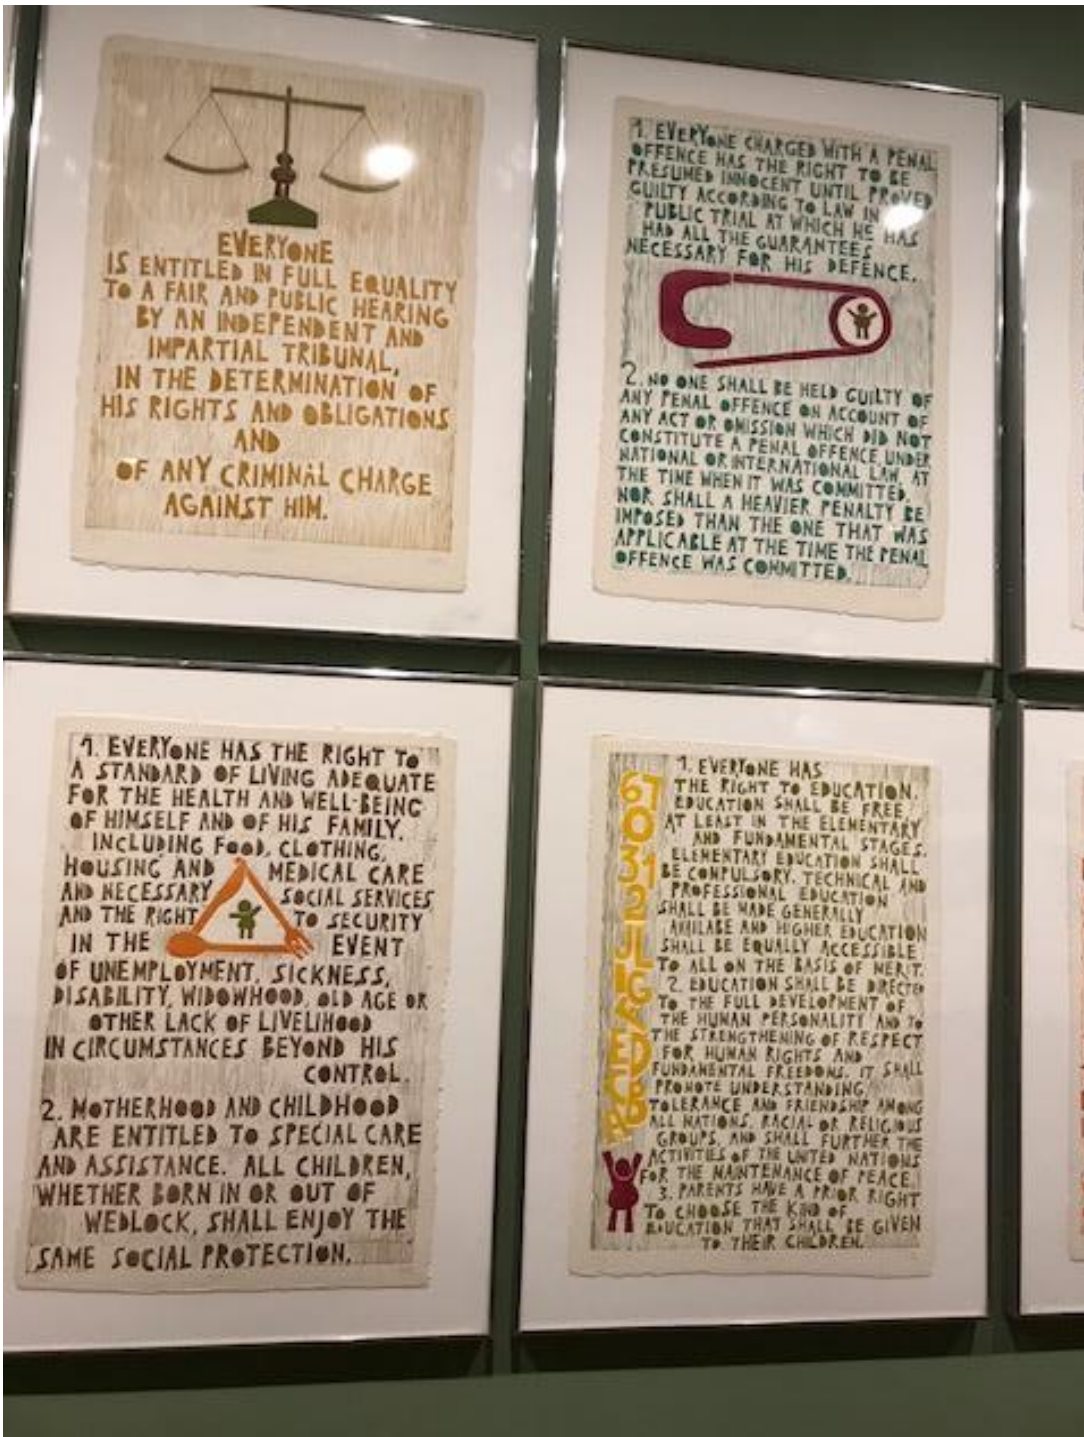 EVERYONE
IS ENTITLED IN FULL EQUALITY
TO A FAIR AND PUBLIC HEARING
BY AN INDEPENDENT AND
IMPARTIAL TRIBUNAL,
IN THE DETERMINATION OF
HIS RIGHTS AND OBLIGATIONS
AND
OF ANY CRIMINAL CHARGE
AGAINST HIM.
1. EVERYONE CHARGED WITH A PENAL
OFFENCE HAS THE RIGHT TO BE
PRESUMED INNOCENT UNTIL PROVED
GUILTY ACCORDING TO LAW IN
PUBLIC TRIAL AT WHICH HE HAS
HAD ALL THE GUARANTEES
NECESSARY FOR HIS DEFENCE.
2. NO ONE SHALL BE HELD GUILTY OF
ANY PENAL OFFENCE ON ACCOUNT OF
ANY ACT OR OMISSION WHICH DID NOT
CONSTITUTE A PENAL OFFENCE, UNDER
NATIONAL OR INTERNATIONAL LAW, AT
THE TIME WHEN IT WAS COMMITTED.
NOR SHALL A HEAVIER PENALTY BE
IMPOSED THAN THE ONE THAT WAS
APPLICABLE AT THE TIME THE PENAL
OFFENCE WAS COMMITTED.
1. EVERYONE HAS THE RIGHT TO
A STANDARD OF LIVING ADEQUATE
FOR THE HEALTH AND WELL-BEING
OF HIMSELF AND OF HIS FAMILY,
INCLUDING FOOD, CLOTHING,
HOUSING AND MEDICAL CARE
AND NECESSARY SOCIAL SERVICES
AND THE RIGHT TO SECURITY
IN THE EVENT
OF UNEMPLOYMENT, SICKNESS,
DISABILITY, WIDOWHOOD, OLD AGE OR
OTHER LACK OF LIVELIHOOD
IN CIRCUMSTANCES BEYOND HIS
CONTROL.
2. MOTHERHOOD AND CHILDHOOD
ARE ENTITLED TO SPECIAL CARE
AND ASSISTANCE. ALL CHILDREN,
WHETHER BORN IN OR OUT OF
WEDLOCK, SHALL ENJOY THE
SAME SOCIAL PROTECTION.
1. EVERYONE HAS
THE RIGHT TO EDUCATION.
EDUCATION SHALL BE FREE,
AT LEAST IN THE ELEMENTARY
AND FUNDAMENTAL STAGES.
ELEMENTARY EDUCATION SHALL
BE COMPULSORY. TECHNICAL AND
PROFESSIONAL EDUCATION
SHALL BE MADE GENERALLY
AVAILABE AND HIGHER EDUCATION
SHALL BE EQUALLY ACCESSIBLE
TO ALL ON THE BASIS OF MERIT.
2. EDUCATION SHALL BE DIRECTED
TO THE FULL DEVELOPMENT OF
THE HUMAN PERSONALITY AND TO
THE STRENGTHENING OF RESPECT
FOR HUMAN RIGHTS AND
FUNDAMENTAL FREEDOMS. IT SHALL
PROMOTE UNDERSTANDING,
TOLERANCE AND FRIENDSHIP AMONG
ALL NATIONS, RACIAL OR RELIGIOUS
GROUPS, AND SHALL FURTHER THE
ACTIVITIES OF THE UNITED NATIONS
FOR THE MAINTENANCE OF PEACE.
3. PARENTS HAVE A PRIOR RIGHT
TO CHOOSE THE KIND OF
EDUCATION THAT SHALL BE GIVEN
TO THEIR CHILDREN.